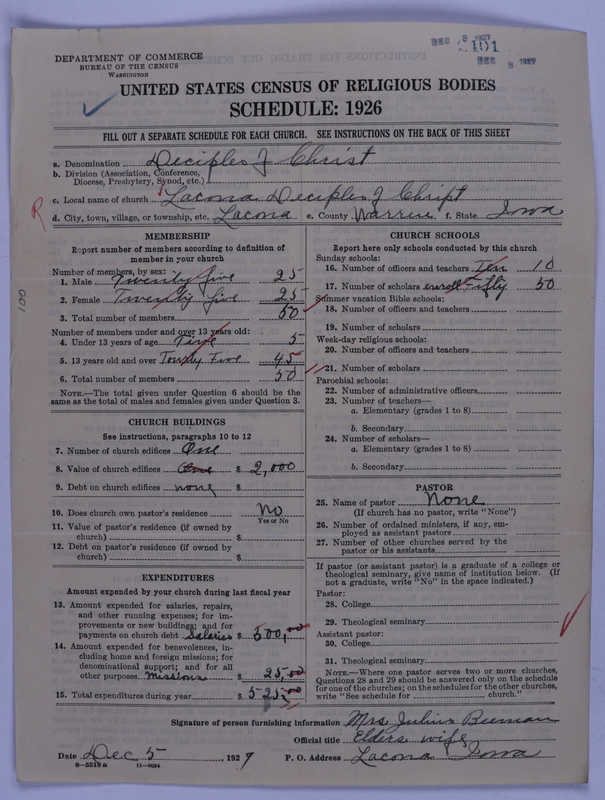 DEC 8 1927
2101
DEC 8 1927
DEPARTMENT OF COMMERCE
BUREAU OF THE CENSUS
WASHINGTON
UNITED STATES CENSUS OF RELIGIOUS BODIES
SCHEDULE: 1926
FILL OUT A SEPARATE SCHEDULE FOR EACH CHURCH. SEE INSTRUCTIONS ON THE BACK OF THIS SHEET
a. Denomination Deciples of Christ
b. Division (Association, Conference,
Diocese, Presbytery, Synod, etc.)
c. Local name of church Lacona Deciples of Christ
R d. City, town, village, or township, etc. Lacona e. County Warren f. State Iowa
MEMBERSHIP
Report number of members according to definition of
member in your church
Number of members, by sex:
1. Male Twenty five 25
2. Female Twenty five 25
3. Total number of members 50
Number of members under and over 13 years old:
4. Under 13 years of age Five 5
5. 13 years old and over Fourty Five 45
6. Total number of members 50
NOTE.—The total given under Question 6 should be
same as the total of males and females given under Question 3.
CHURCH BUILDINGS
See instructions, paragraphs 10 to 12
7. Number of church edifices One
8. Value of church edifices One $ 2,000
9. Debt on church edifices none $
10. Does church own pastor's residence No
Yes or No
11. Value of pastor's residence (if owned by
church) $
12. Debt on pastor's residence (if owned by
church) $
EXPENDITURES
Amount expended by your church during last fiscal year
13. Amount expended for salaries, repairs,
and other running expenses; for im-
provements or new buildings; and for
payments on church debt Salaries $ 500,00
14. Amount expended for benevolences, in-
cluding home and foreign missions; for
denominational support; and for all
other purposes Missions $ 25 00
15. Total expenditures during year $ 525 00
CHURCH SCHOOLS
Report here only schools conducted by this church
Sunday schools:
16. Number of officers and teachers Ten 10
17. Number of scholars enroll Fifty 50
Summer vacation Bible schools:
18. Number of officers and teachers
19. Number of scholars
Week-day religious schools:
20. Number of officers and teachers
21. Number of scholars
Parochial schools:
22. Number of administrative officers
23. Number of teachers—
a. Elementary (grades 1 to 8)
b. Secondary
24. Number of scholars—
a. Elementary (grades 1 to 8)
b. Secondary
PASTOR
25. Name of pastor None
(If church has no pastor, write "None")
26. Number of ordained ministers, if any, em-
ployed as assistant pastors
27. Number of other churches served by the
pastor or his assistants
If pastor (or assistant pastor) is a graduate of a college or
theological seminary, give name of institution below. (If
not a graduate, write "No" in the space indicated.)
Pastor:
28. College
29. Theological seminary
Assistant pastor:
30. College
31. Theological seminary
NOTE.—Where one pastor serves two or more churches,
Questions 28 and 29 should be answered only on the schedule
for one of the churches; on the schedules for the other churches,
write "See schedule for church."
Signature of person furnishing information Mrs Julius Beeman
Official title Elders wife
Date Dec 5, 1927 P. O. Address Lacona Iowa
8-5518 a 11-9034
100